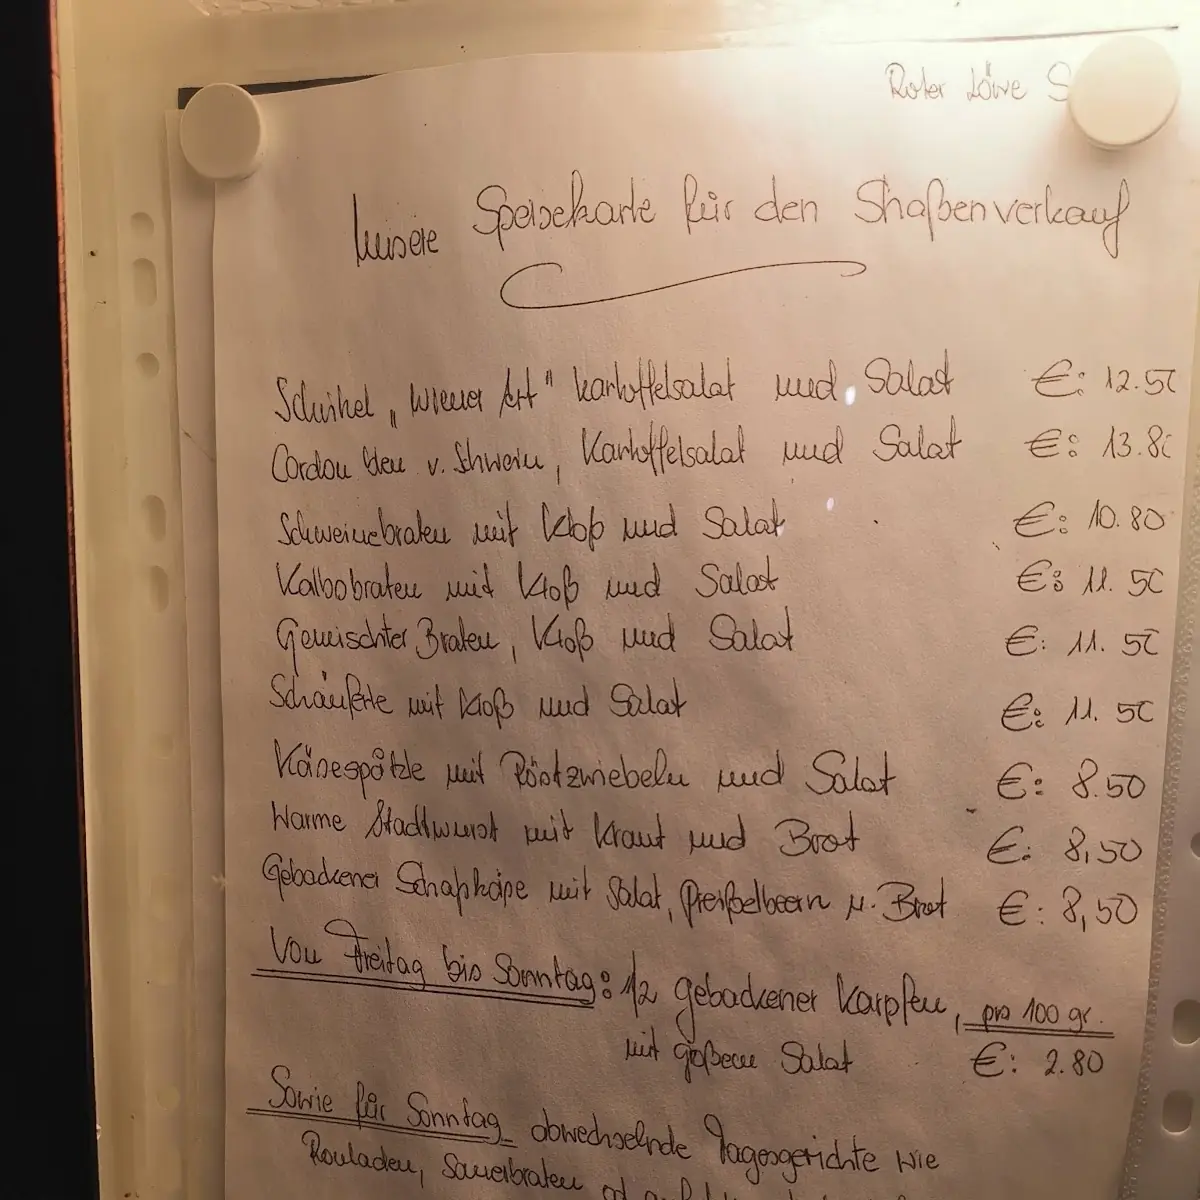 Roter Löwe S
Unsere Speisekarte für den Straßenverkauf
Schnitzel „Wiener Art" Kartoffelsalat und Salat €: 12.50
Cordon bleu v. Schwein, Kartoffelsalat und Salat €: 13.80
Schweinebraten mit Kloß und Salat €: 10.80
Kalbsbraten mit Kloß und Salat €: 11.50
Gemischter Braten, Kloß und Salat €: 11.50
Schäuferle mit Kloß und Salat €: 11.50
Käsespätzle mit Röstzwiebeln und Salat €: 8.50
Warme Stadtwurst mit Kraut und Brot €: 8,50
Gebackener Schafskäse mit Salat, Preißelbeern u. Brot €: 8,50
Von Freitag bis Sonntag: 1/2 gebackener Karpfen, pro 100 gr.
mit großem Salat €: 2.80
Sowie für Sonntag abwechselnde Tagesgerichte wie
Rouladen, Sauerbraten od